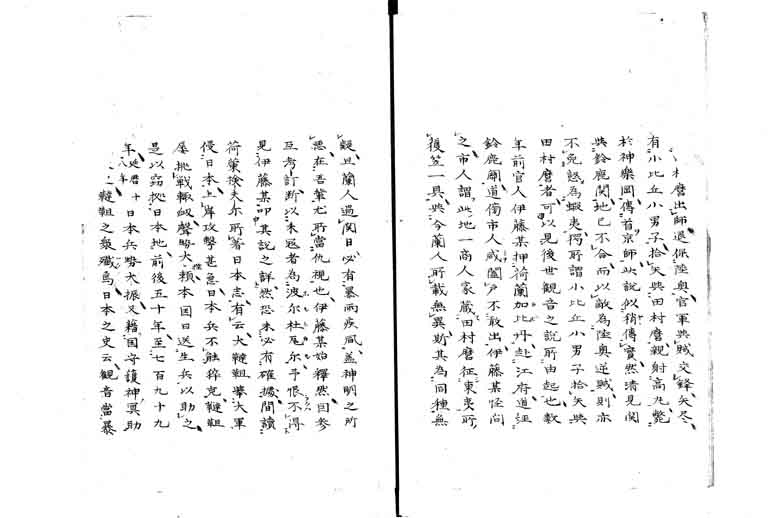 村麿出師退佩陸奥官軍與賊交鋒矢尽
有小比丘小男子拾矢與田村麿親射高丸斃
於神樂岡傳首京師此説似稍傳實然清見関
與鈴鹿関地已不合而以敵為陸奥逆賊則亦
不免愆為蝦夷獨所謂小比丘小男子拾矢與
田村麿者可以見後世観音之説所由起也数
年前官人伊藤某押荷蘭加比丹赴江府道経
鈴鹿廟道傍市人咸闔戸不敢出伊藤某怪問
之市人謂此地一商人家蔵田村麿征東夷所
獲笠一具與今蘭人所載無異斯其為同種無
疑且蘭人過関日必有暴雨疾風蓋神明之所
悪在吾輩尤所當仇視也伊藤某始釋然因参
互考訂断以未冠者為波尔杜瓦尔予恨不得
見伊藤某叩其説之詳然恐未必有確據間讀
荷蘭検夫尓所著日本志有云大韃靼挙大軍
侵日本上岸攻撃甚急日本兵不触称克韃靼
屡挑戦輙敗聲勢大頼本國日送生兵以助之
是以窃拠日本地前後五十年至七百九十九
年延暦十八年日本兵勢大振又藉国守護神冥助
韃靼之衆殱焉日本之史云観音當暴